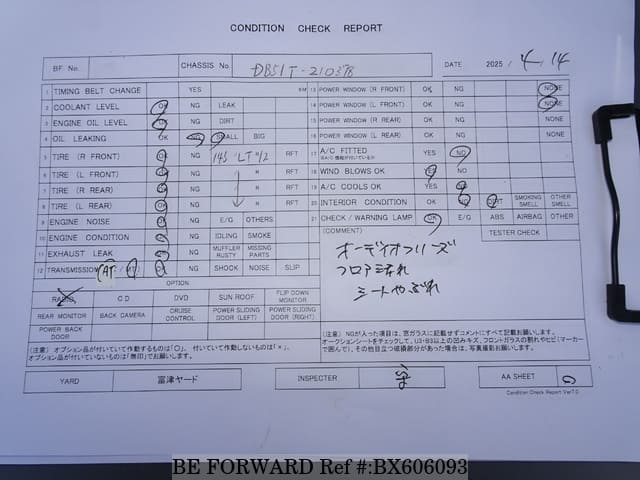 CONDITION CHECK REPORT
BF No. CHASSIS No. DB51T-210378 DATE 2025 / 4 / 14
1 TIMING BELT CHANGE YES KM
2 COOLANT LEVEL OK NG LEAK
3 ENGINE OIL LEVEL OK NG DIRT
4 OIL LEAKING OK NG SMALL BIG
5 TIRE (R FRONT) OK NG 145 LT 12 RFT
6 TIRE (L FRONT) OK NG " RFT
7 TIRE (R REAR) OK NG " RFT
8 TIRE (L REAR) OK NG " RFT
9 ENGINE NOISE OK NG E/G OTHERS
10 ENGINE CONDITION OK NG IDLING SMOKE
11 EXHAUST LEAK OK NG MUFFLER RUSTY MISSING PARTS
12 TRANSMISSION (AT / MT) OK NG SHOCK NOISE SLIP
13 POWER WINDOW (R FRONT) OK NG NONE
14 POWER WINDOW (L FRONT) OK NG NONE
15 POWER WINDOW (R REAR) OK NG NONE
16 POWER WINDOW (L REAR) OK NG NONE
17 A/C FITTED YES NO
18 WIND BLOWS OK YES NO
19 A/C COOLS OK YES NO
20 INTERIOR CONDITION OK NG DIRT SMOKING SMELL OTHER SMELL
21 CHECK / WARNING LAMP OK E/G ABS AIRBAG OTHER
(COMMENT) TESTER CHECK
オーディオフリーズ
フロア汚れ
シートやぶれ
OPTION
RADIO CD DVD SUN ROOF FLIP DOWN MONITOR
REAR MONITOR BACK CAMERA CRUISE CONTROL POWER SLIDING DOOR (LEFT) POWER SLIDING DOOR (RIGHT)
POWER BACK DOOR
(注意) オプション品が付いていて作動するものは「〇」、付いていて作動しないものは「×」、
オプション品が付いていないものは「無印」でお願いします。
(注意) NGが入った項目は、窓ガラスに記載せずコメントにすべて記載お願いします。
オークションシートをチェックして、U3・B3以上の凹みキズ、フロントガラスの割れやヒビ(マーカー
で囲んで)、その他目立つ破損部分があった場合は、写真撮影お願いします。
YARD 富津ヤード INSPECTER AA SHEET
Condition Check Report Ver7.0
BE FORWARD Ref #:BX606093